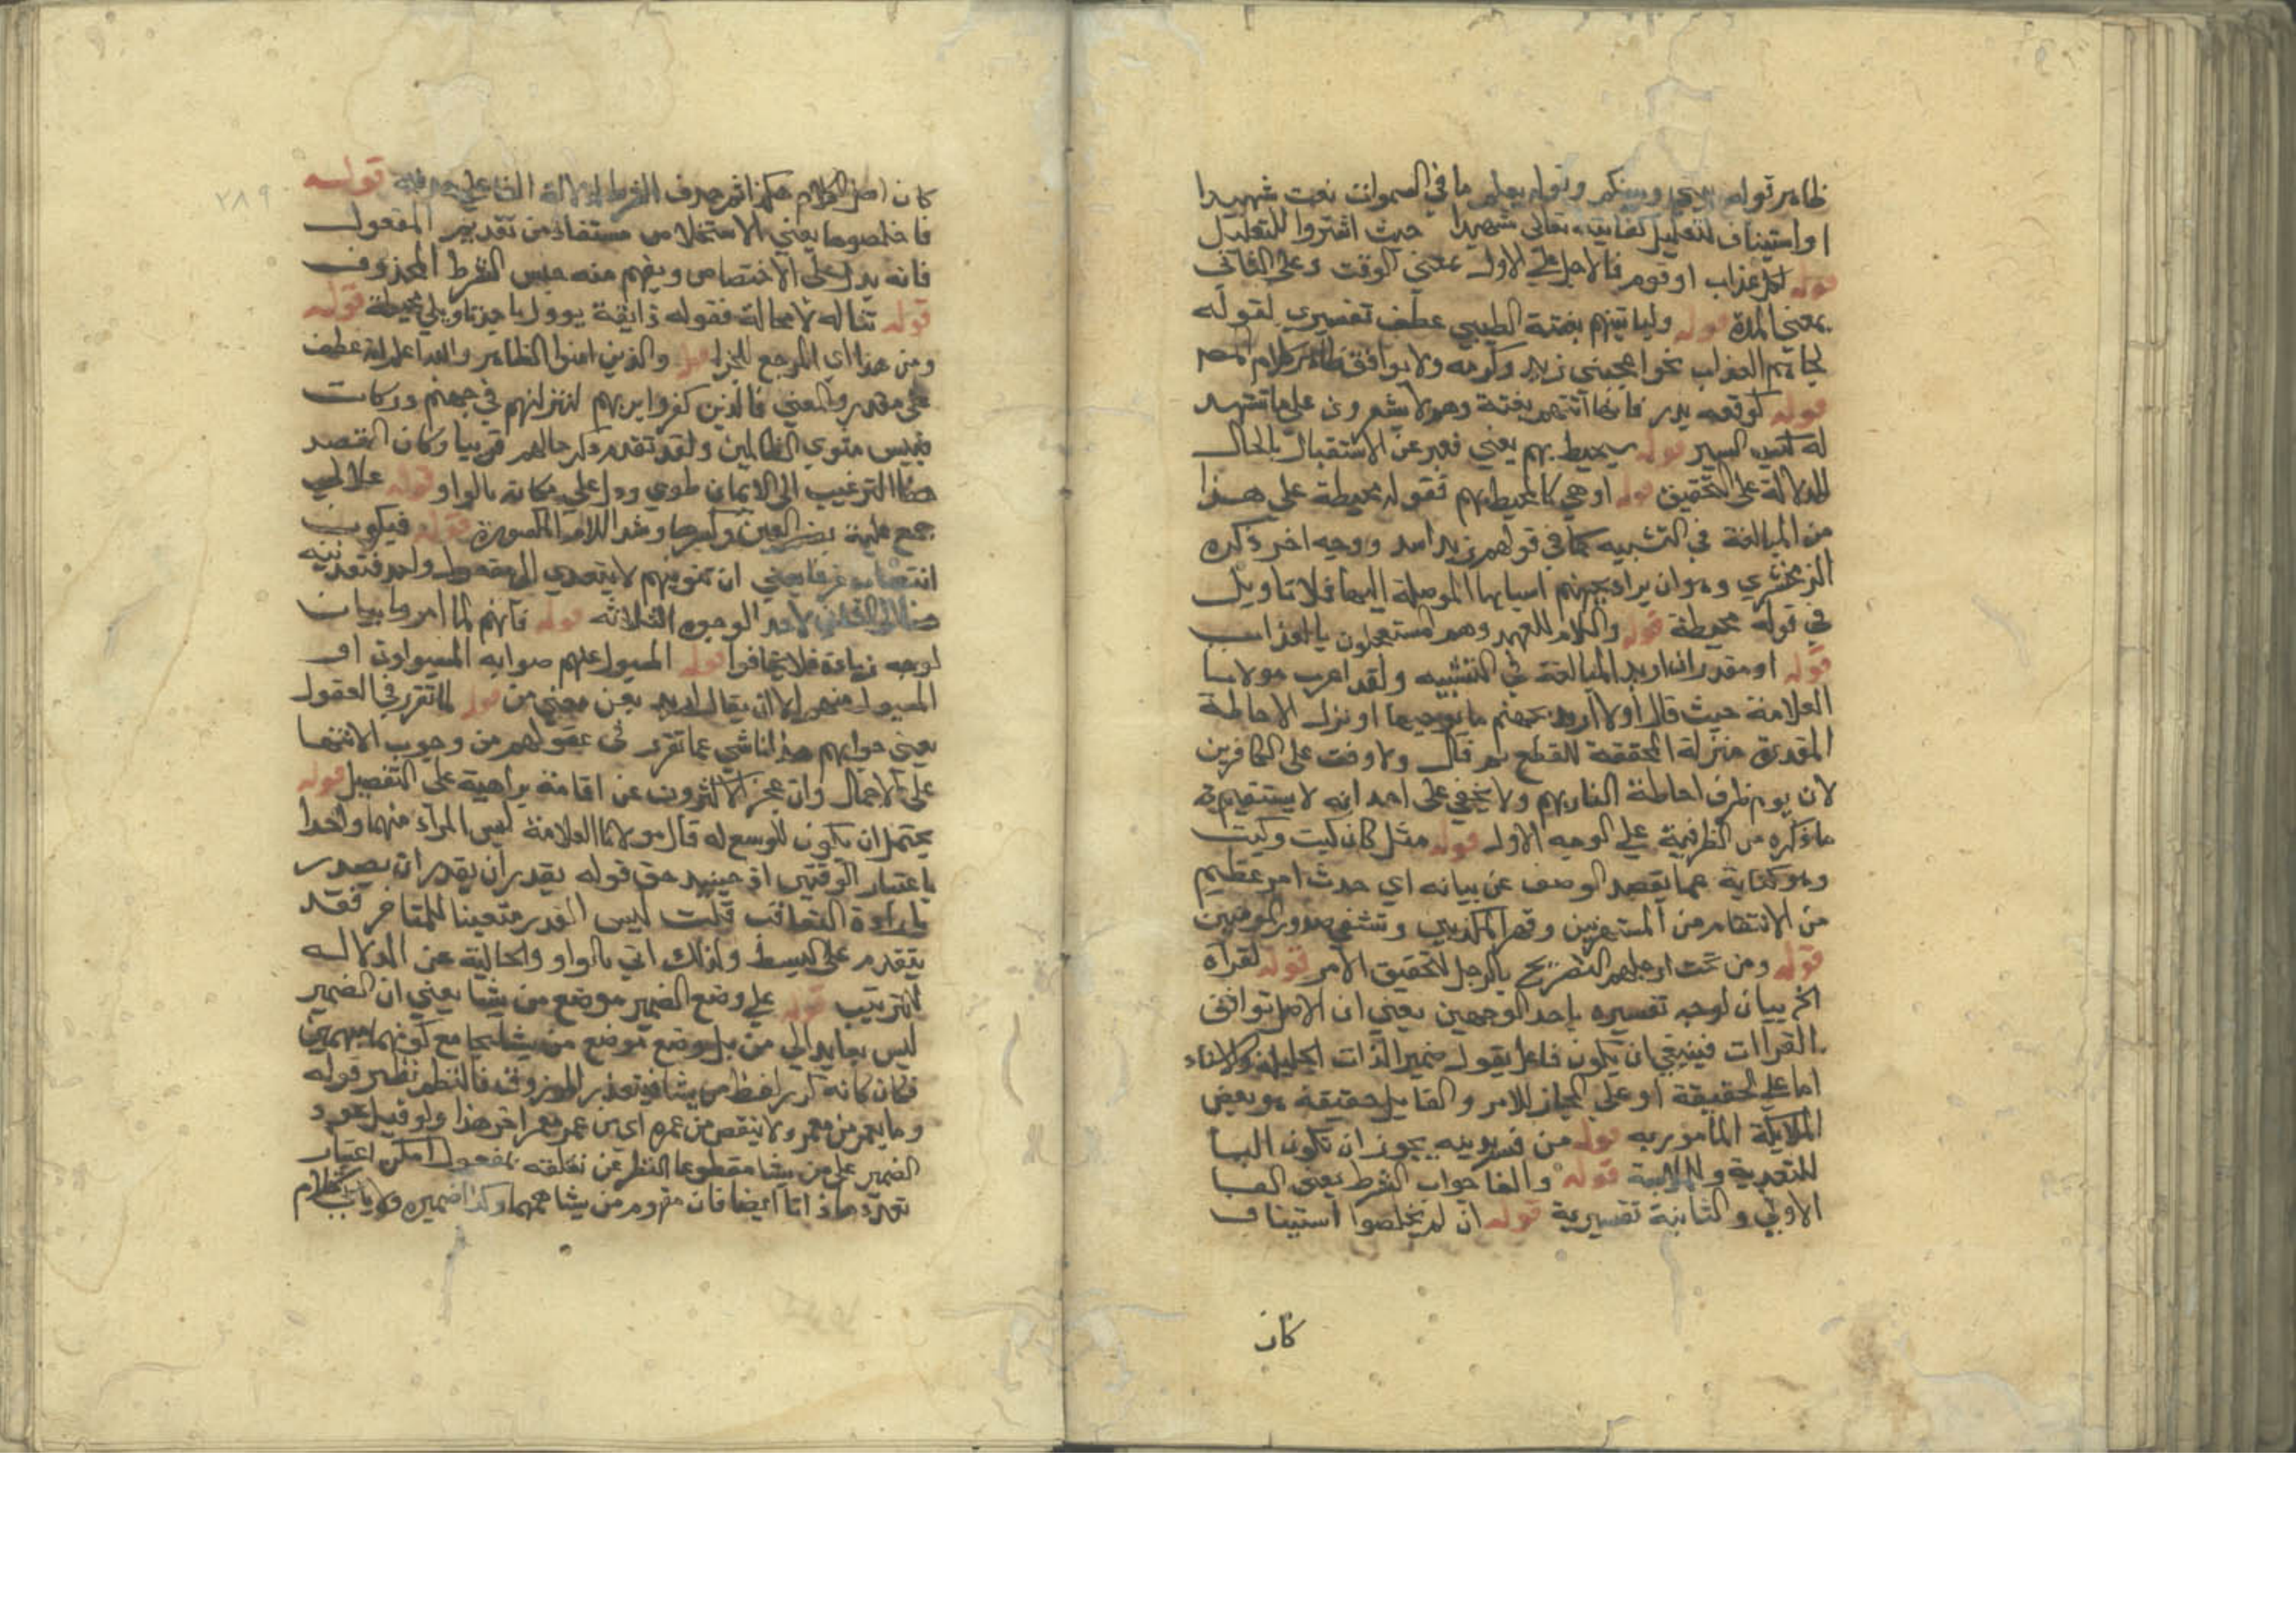 ظاهر قوله بيني وبينكم وقوله يعلم ما في السموات نعت شهيدا
او استيناف لتعليل كفايته تعالى شهيدا حيث اقتروا للتعليل
قوله لكل عذاب او قوم فالاجل على الاول بمعنى الوقت وعلى الثاني
بمعنى المدة قوله ولياتينهم بغتة الطيبي عطف تفسيري لقوله
لجاءهم العذاب نحو اعجبني زيد وكرمه ولا يوافق ظاهر كلام المص
قوله كوقعه بدر فانها اتتهم بغتة وهم لا يشعرون على ما تشهد
له كتب السير قوله سيحيط بهم يعني فعبر عن الاستقبال بالحال
للدلالة على التحقيق قوله او هي كالمحيط بهم فقوله محيطة على هذا
من المبالغة في التشبيه كما في قولهم زيد اسد ووجه اخر ذكره
الزمخشري وهو ان يراد بجهنم اسبابها الموصلة اليها فلا تاويل
في قوله محيطة قوله واللام للعهد وهم المستعجلون بالعذاب
قوله او مقدر ان اريد المبالغة في التشبيه ولقد اعرب مولانا
العلامة حيث قال اولا اريد بجهنم ما يوجبها او نزل الاحاطة
المقدرة منزلة المحققة للقطع ثم قال ولا وقت على الكافرين
لان يوم ظرف احاطة النار بهم ولا يخفى على احد انه لا يستقيم
ما ذكره من الظرفية على الوجه الاول قوله مثل كان كيت وكيت
وهو كناية عما يقصد الوصف عن بيانه اي حدث امر عظيم
من الانتقام من المستهزيين وقهر المكذبين وتشفي صدور المومنين
قوله ومن تحت ارجلهم التصريح بالرجل لتحقيق الامر قوله لقراة
الخ بيان لوجه تفسيره باحد الوجهين يعني ان الاصل توافق
القراات فينبغي ان يكون فاعل يقول ضمير الذات الجليلة والاسناد
اما على الحقيقة او على المجاز للامر والقايل حقيقة هو بعض
الملايكة المامور به قوله من فسر دينه يجوز ان تكون البا
للتعدية والملابسة قوله والفا جواب الشرط يعني الفا
الاولي والثانية تفسيرية قوله ان لم تخلصوا استيناف
كان
٢٨٩
كان اصل الكلام هكذا ثم حذف الشرط لدلالة الفا على حذفه قوله
فاخلصوها يعني الاستخلاص مستفاد من تقديم المفعول
فانه يدل على الاختصاص ويفهم منه جنس الشرط المحذوف
قوله تناله لا محالة فقوله ذايقة يوول باحد تاويلي محيطة قوله
ومن هذا اي المرجع للجزا قوله والذين امنوا الظاهر والله اعلم انه عطف
على مقدر والمعنى فالذين كفروا بربهم لننزلنهم في جهنم دركات
فبيس مثوي الظالمين ولقد تقدم ذكر حالهم قريبا وكان القصد
هنا الترغيب الى الايمان طوي ودل على مكانه بالواو قوله علالي
جمع علية بضم العين وكسرها وشد اللام المكسورة قوله فيكون
انتصاب غرفا يعني ان تثويهم لا يتعدي الى مفعول واحد فتعديته
الى الثاني لاحد الوجوه الثلاثه قوله فانهم لما امروا بيان
لوجه زيادة فلا تخافوا قوله المسيول عنهم صوابه المسيولون او
المسيول منهم الا ان يقال اريد بعن معنى من قوله لما تقرر في العقول
يعني جوابهم هذا ناشي عما تقرر في عقولهم من وجوب الانتها
على الاجمال وان عجز الاكثرون عن اقامة براهينه على التفصيل قوله
يحتمل ان يكون الموسع له قال مولانا العلامة ليس المراد منهما واحدا
باعتبار الوقتين اذ حينيذ حق قوله يقدر ان يقدر ان يصدر
بارادة التعاقب قلت ليس القدر متعينا للمتاخر فقد
يتقدم على البسط ولذلك اتي بالواو والخالية عن الدلاله
الترتيب قوله على وضع الضمير موضع من يشا يعني ان الضمير
ليس بعايد الي من بل وضع موضع من يشا بجامع كونهما مبهمين
فكان كانه كرر لفظ من يشا فيتعدد المرزوق فالنظم نظير قوله
وما يعمر من معمر ولا ينقص من عمره اي من عمر معمر اخر هذا ولو قيل بعود
الضمير على من يشا مقطوعا النظر عن تعلقه بمفعول امكن اعتبار
تعدد ما ذاتا ايضا فان مفهوم من يشا مبهما وكذا ضميره